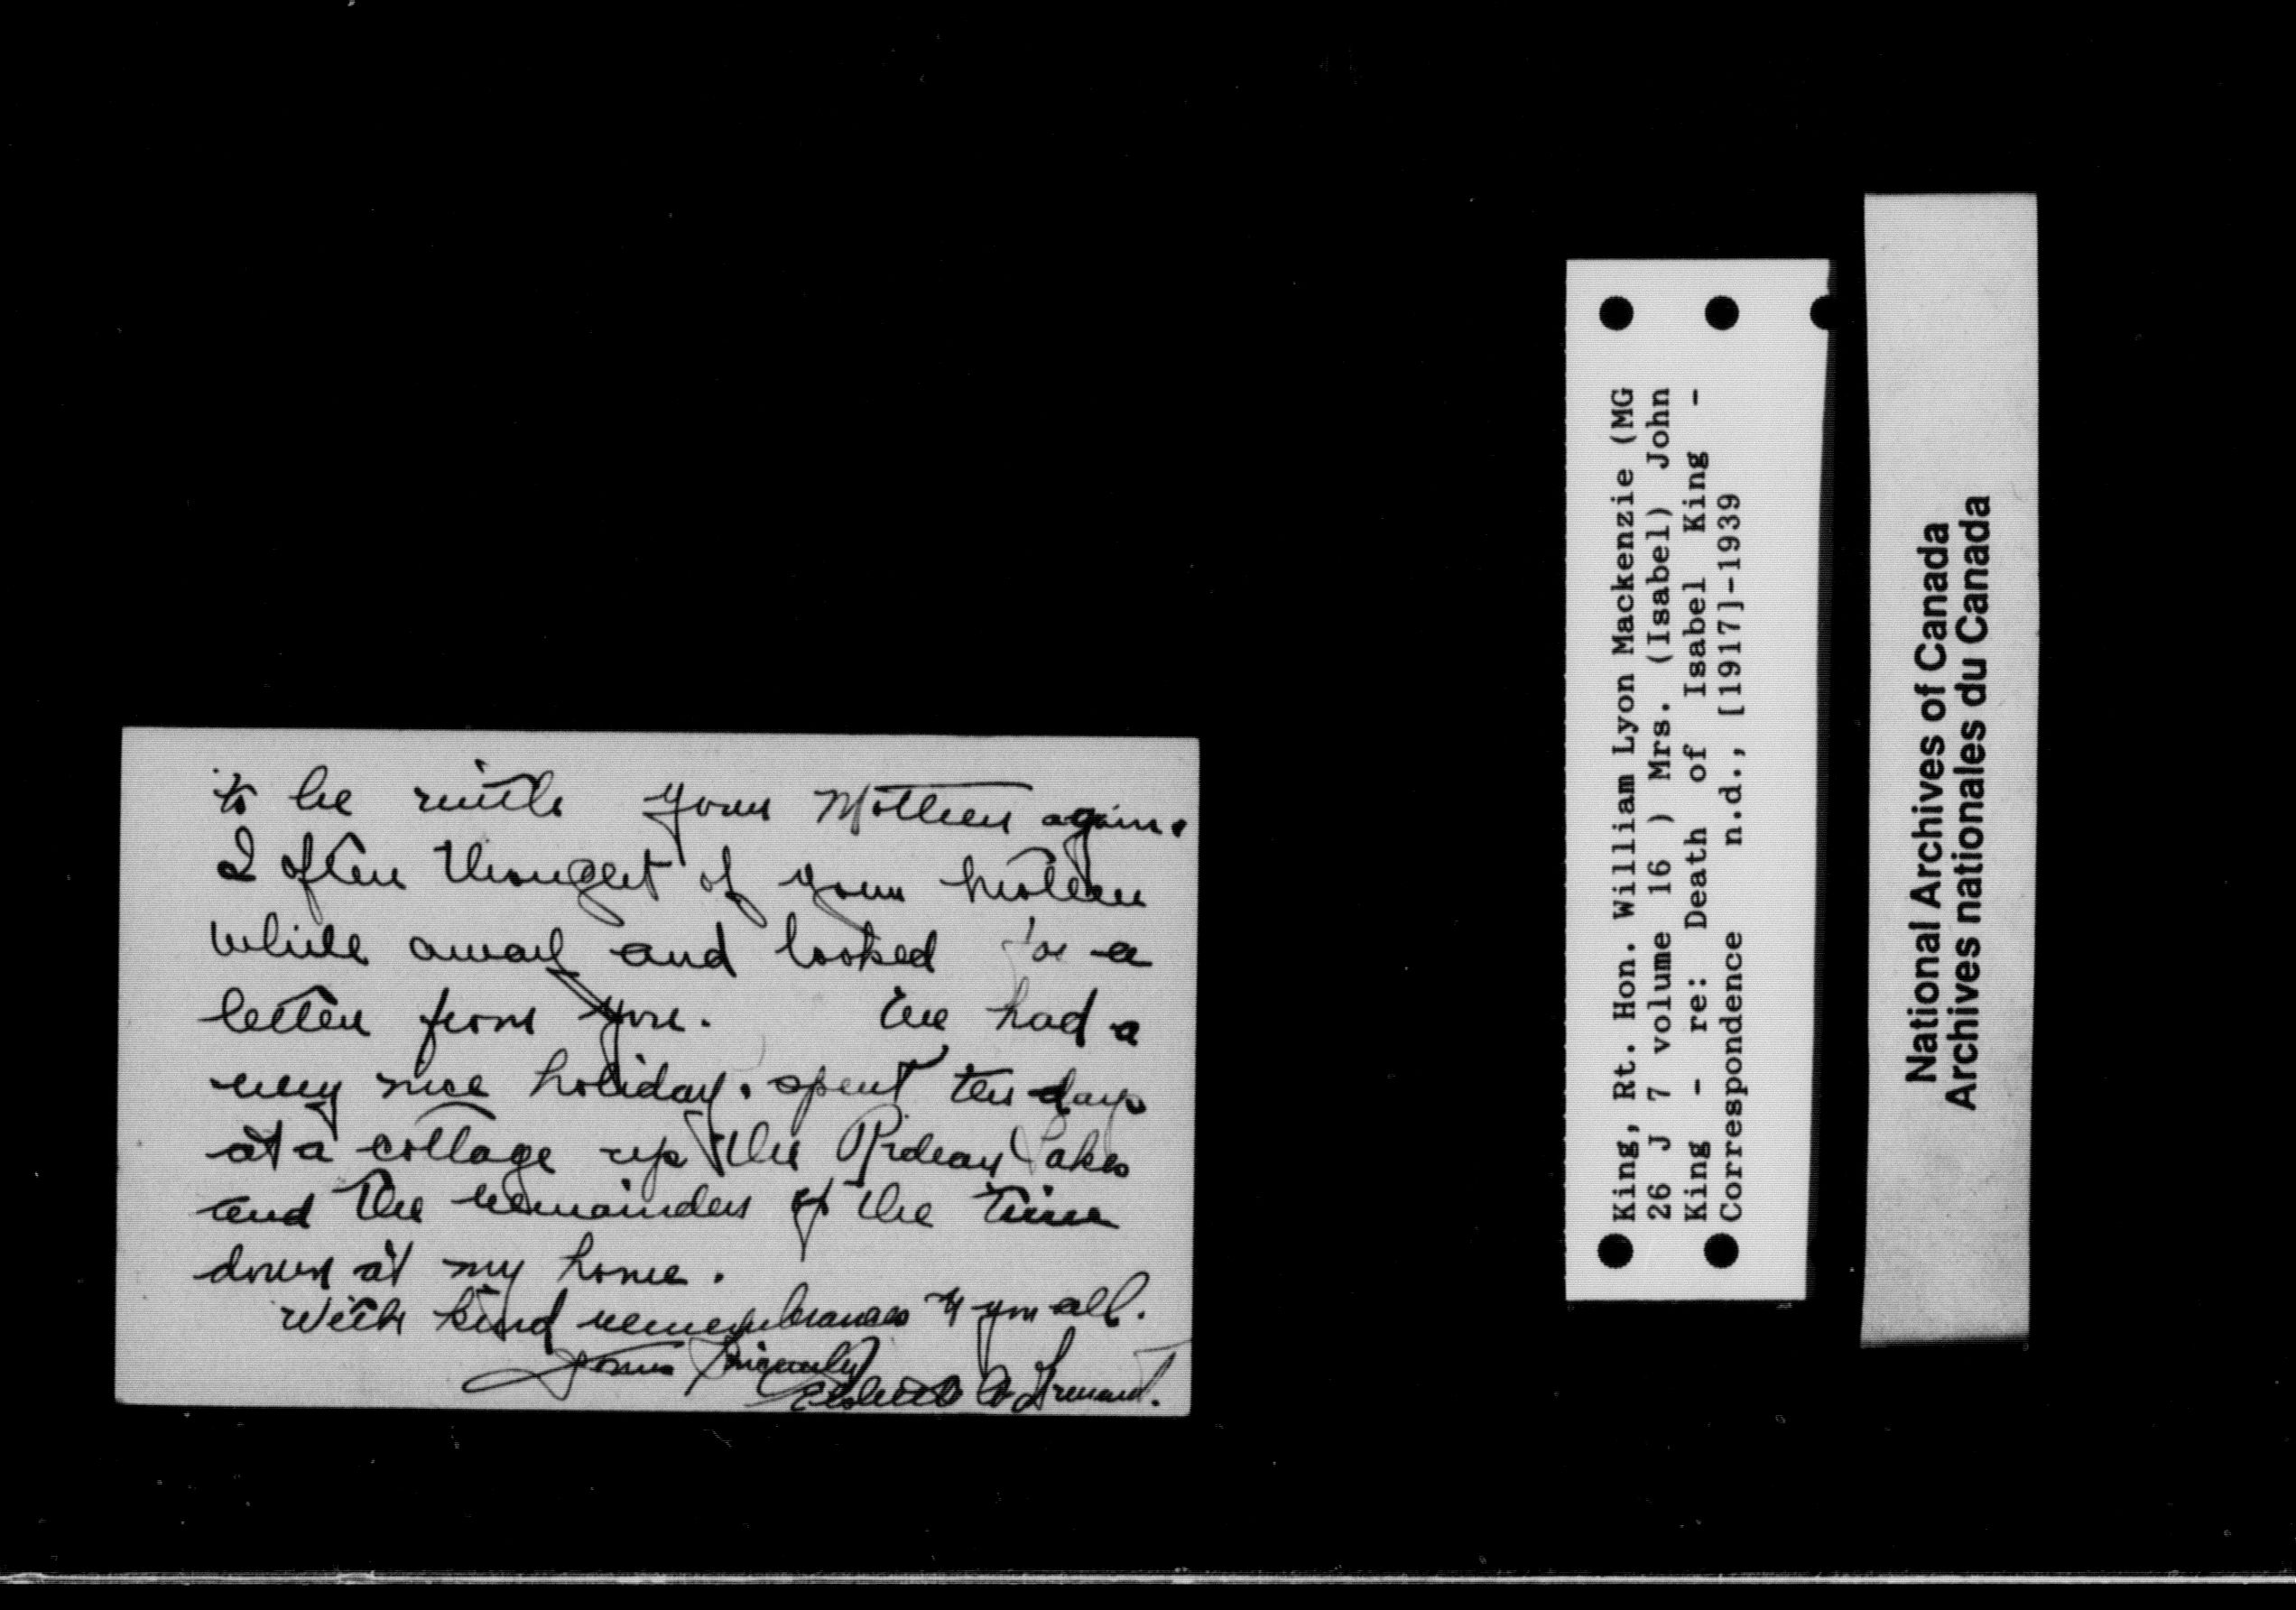 to be with your Mother again.
I often thought of your mother
while away and looked for a
letter from you. We had a
very nice holiday. spent ten days
at a cottage up the Rideau Lakes
and the remainder of the time
down at my home.
With kind remembrances to you all.
Yours Sincerely
King, Rt. Hon. William Lyon Mackenzie (MG
26 J 7 volume 16 ) Mrs. (Isabel) John
King - re: Death of Isabel King -
Correspondence n.d., [1917]-1939
National Archives of Canada
Archives nationales du Canada